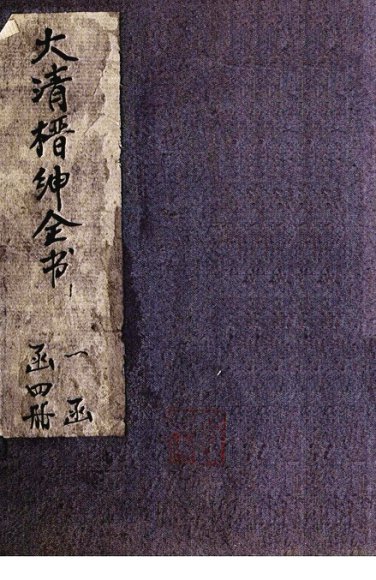 大清搢绅全书
一函
函四册